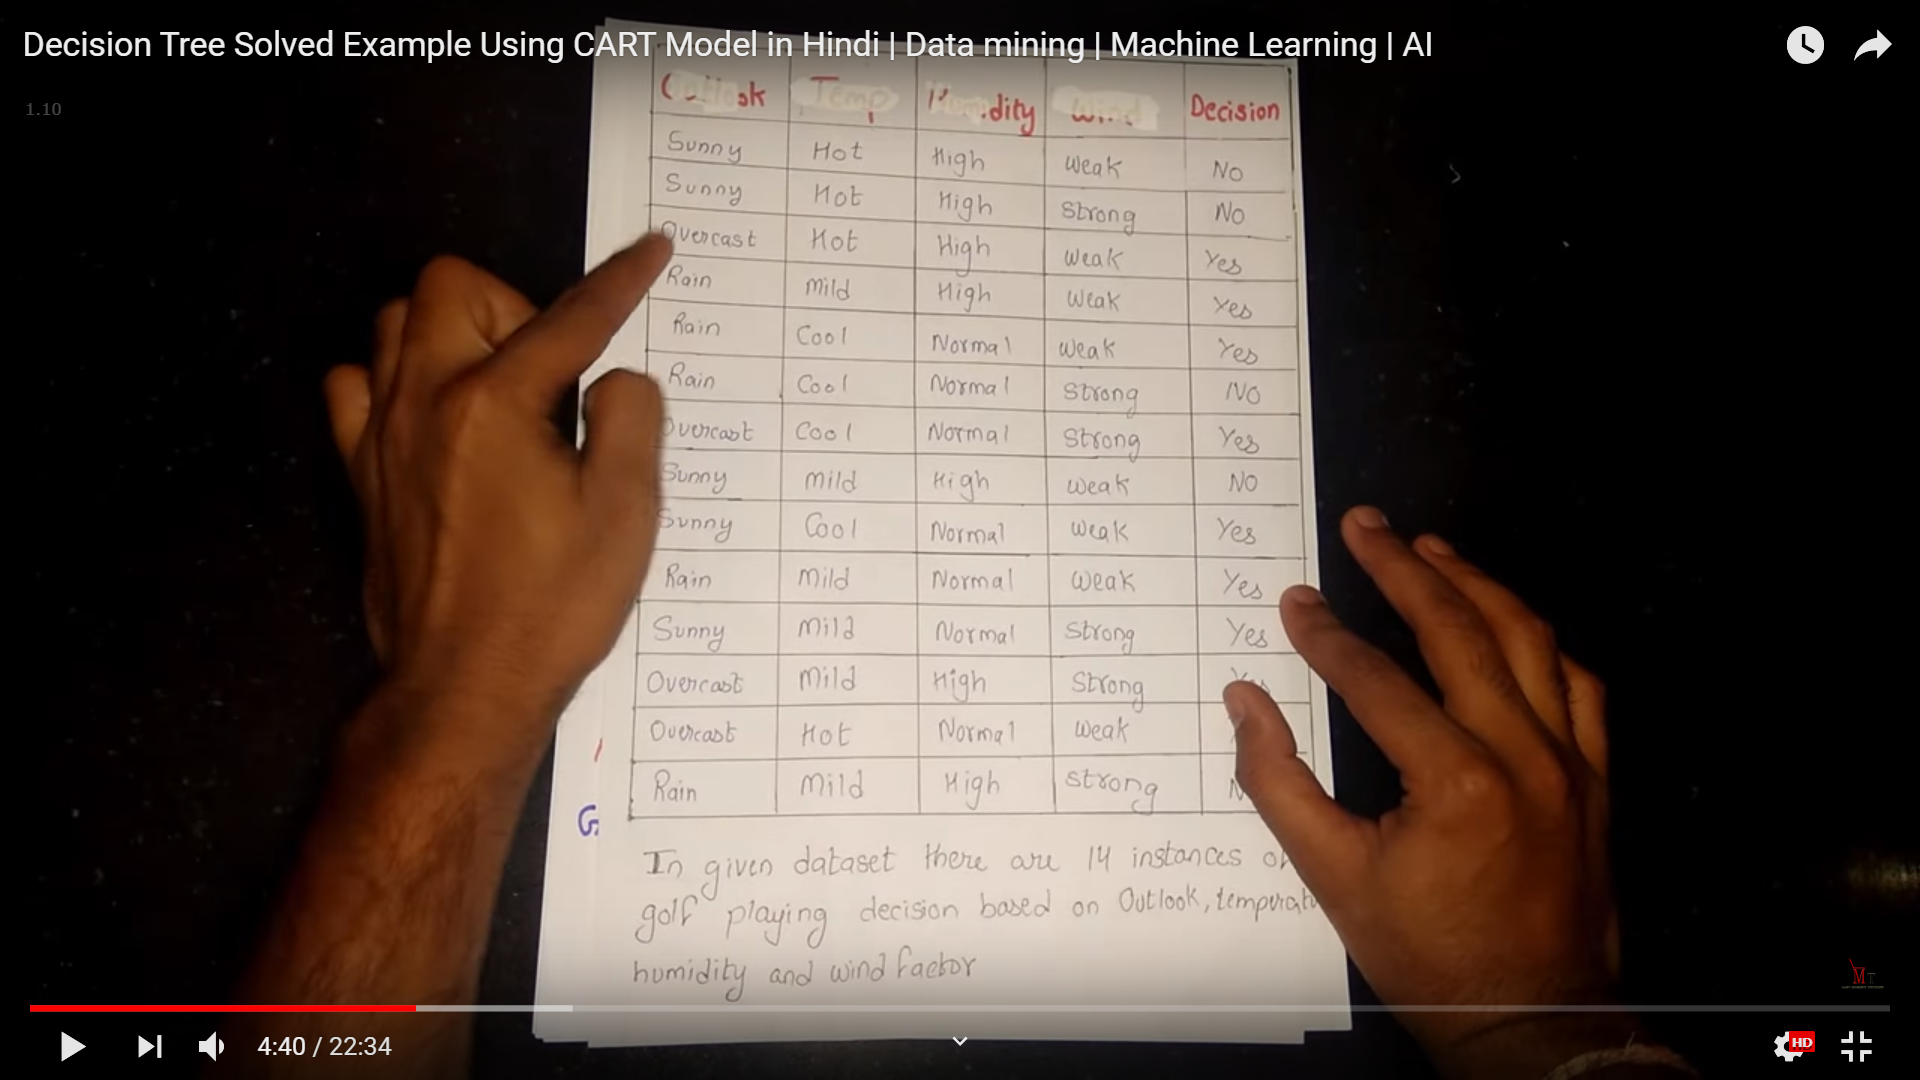 Decision Tree Solved Example Using CART Model in Hindi | Data mining | Machine Learning | AI
1.10
Outlook Temp Humidity Wind Decision
Sunny Hot High Weak No
Sunny Hot High Strong No
Overcast Hot High Weak Yes
Rain Mild High Weak Yes
Rain Cool Normal Weak Yes
Rain Cool Normal Strong No
Overcast Cool Normal Strong Yes
Sunny Mild High Weak No
Sunny Cool Normal Weak Yes
Rain Mild Normal Weak Yes
Sunny Mild Normal Strong Yes
Overcast Mild High Strong Yes
Overcast Hot Normal Weak
Rain Mild High Strong
G
In given dataset there are 14 instances of
golf playing decision based on Outlook, temperatu
humidity and wind factor
MT
4:40 / 22:34
HD